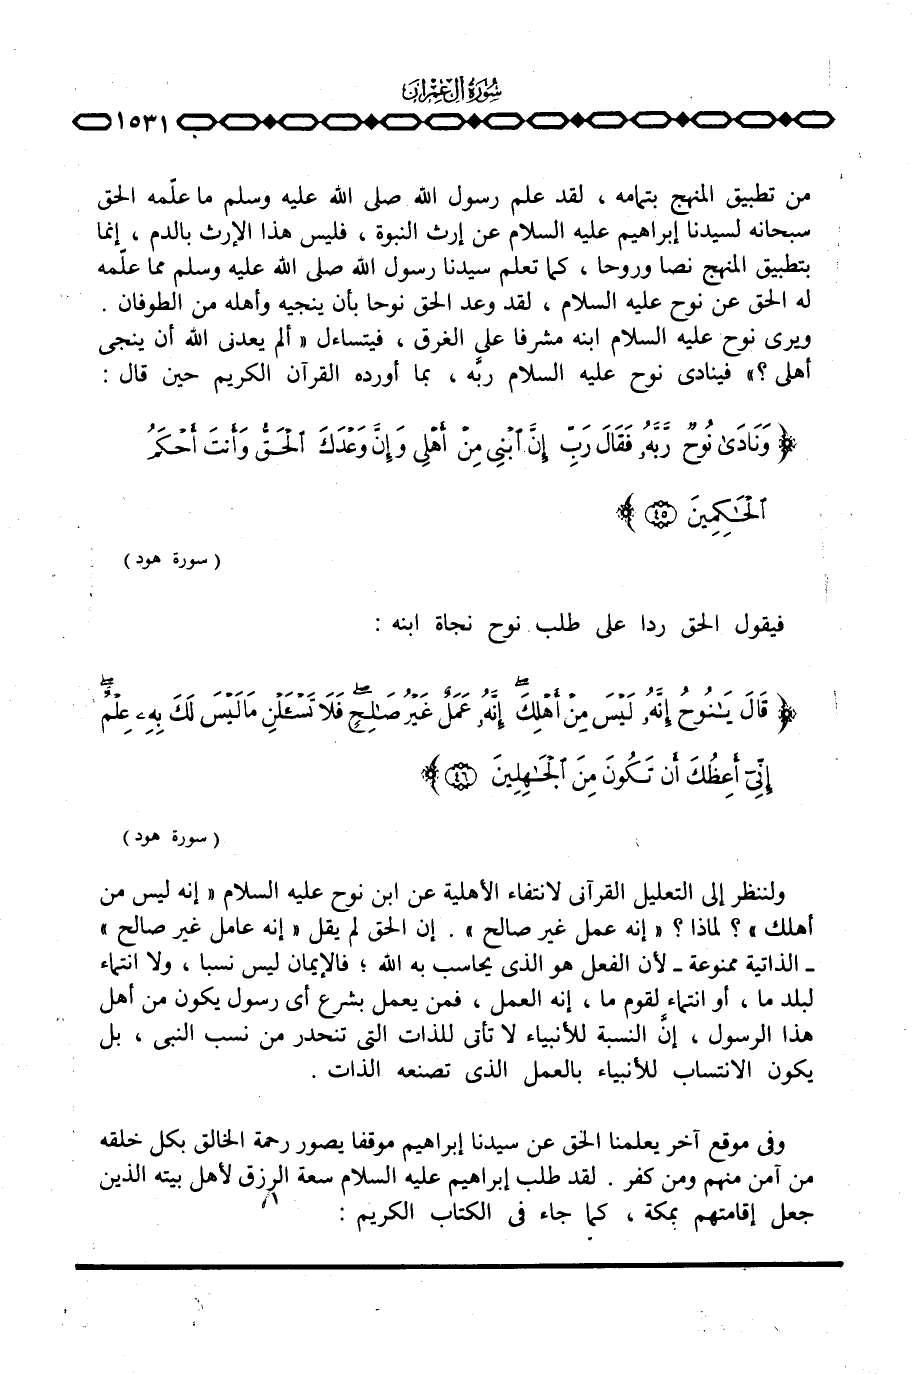 سُورَةُ آلِ عِمْرَانَ
١٥٣١
من تطبيق المنهج بتمامه ، لقد علم رسول الله صلى الله عليه وسلم ما علّمه الحق
سبحانه لسيدنا إبراهيم عليه السلام عن إرث النبوة ، فليس هذا الإرث بالدم ، إنما
بتطبيق المنهج نصا وروحا ، كما تعلم سيدنا رسول الله صلى الله عليه وسلم مما علّمه
له الحق عن نوح عليه السلام ، لقد وعد الحق نوحا بأن ينجيه وأهله من الطوفان .
ويرى نوح عليه السلام ابنه مشرفا على الغرق ، فيتساءل « ألم يعدنى الله أن ينجى
أهلى ؟» فينادى نوح عليه السلام ربَّه ، بما أورده القرآن الكريم حين قال :
﴿ وَنَادَىٰ نُوحٌ رَّبَّهُۥ فَقَالَ رَبِّ إِنَّ ٱبْنِى مِنْ أَهْلِى وَإِنَّ وَعْدَكَ ٱلْحَقُّ وَأَنتَ أَحْكَمُ
ٱلْحَٰكِمِينَ ٤٥ ﴾
( سورة هود )
فيقول الحق ردا على طلب نوح نجاة ابنه :
﴿ قَالَ يَٰنُوحُ إِنَّهُۥ لَيْسَ مِنْ أَهْلِكَۖ إِنَّهُۥ عَمَلٌ غَيْرُ صَٰلِحٍۖ فَلَا تَسْـَٔلْنِ مَا لَيْسَ لَكَ بِهِۦ عِلْمٌۖ
إِنِّىٓ أَعِظُكَ أَن تَكُونَ مِنَ ٱلْجَٰهِلِينَ ٤٦ ﴾
( سورة هود )
ولننظر إلى التعليل القرآنى لانتفاء الأهلية عن ابن نوح عليه السلام « إنه ليس من
أهلك » ؟ لماذا ؟ « إنه عمل غير صالح » . إن الحق لم يقل « إنه عامل غير صالح »
ـ الذاتية ممنوعة ـ لأن الفعل هو الذى يحاسب به الله ؛ فالإيمان ليس نسبا ، ولا انتماء
لبلد ما ، أو انتماء لقوم ما ، إنه العمل ، فمن يعمل بشرع أى رسول يكون من أهل
هذا الرسول ، إنَّ النسبة للأنبياء لا تأتى للذات التى تنحدر من نسب النبى ، بل
يكون الانتساب للأنبياء بالعمل الذى تصنعه الذات .
وفى موقع آخر يعلمنا الحق عن سيدنا إبراهيم موقفا يصور رحمة الخالق بكل خلقه
من آمن منهم ومن كفر . لقد طلب إبراهيم عليه السلام سعة الرزق لأهل بيته الذين
جعل إقامتهم بمكة ، كما جاء فى الكتاب الكريم :